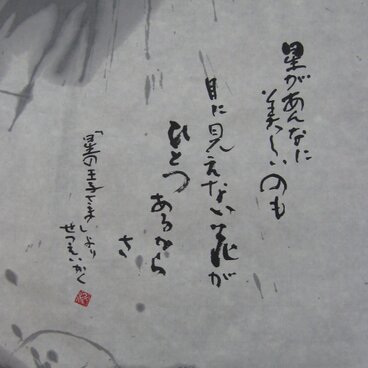 星があんなに
美しいのも
目に見えない花が
ひとつ
あるから
さ
「星の王子さま」より
せつえいかく